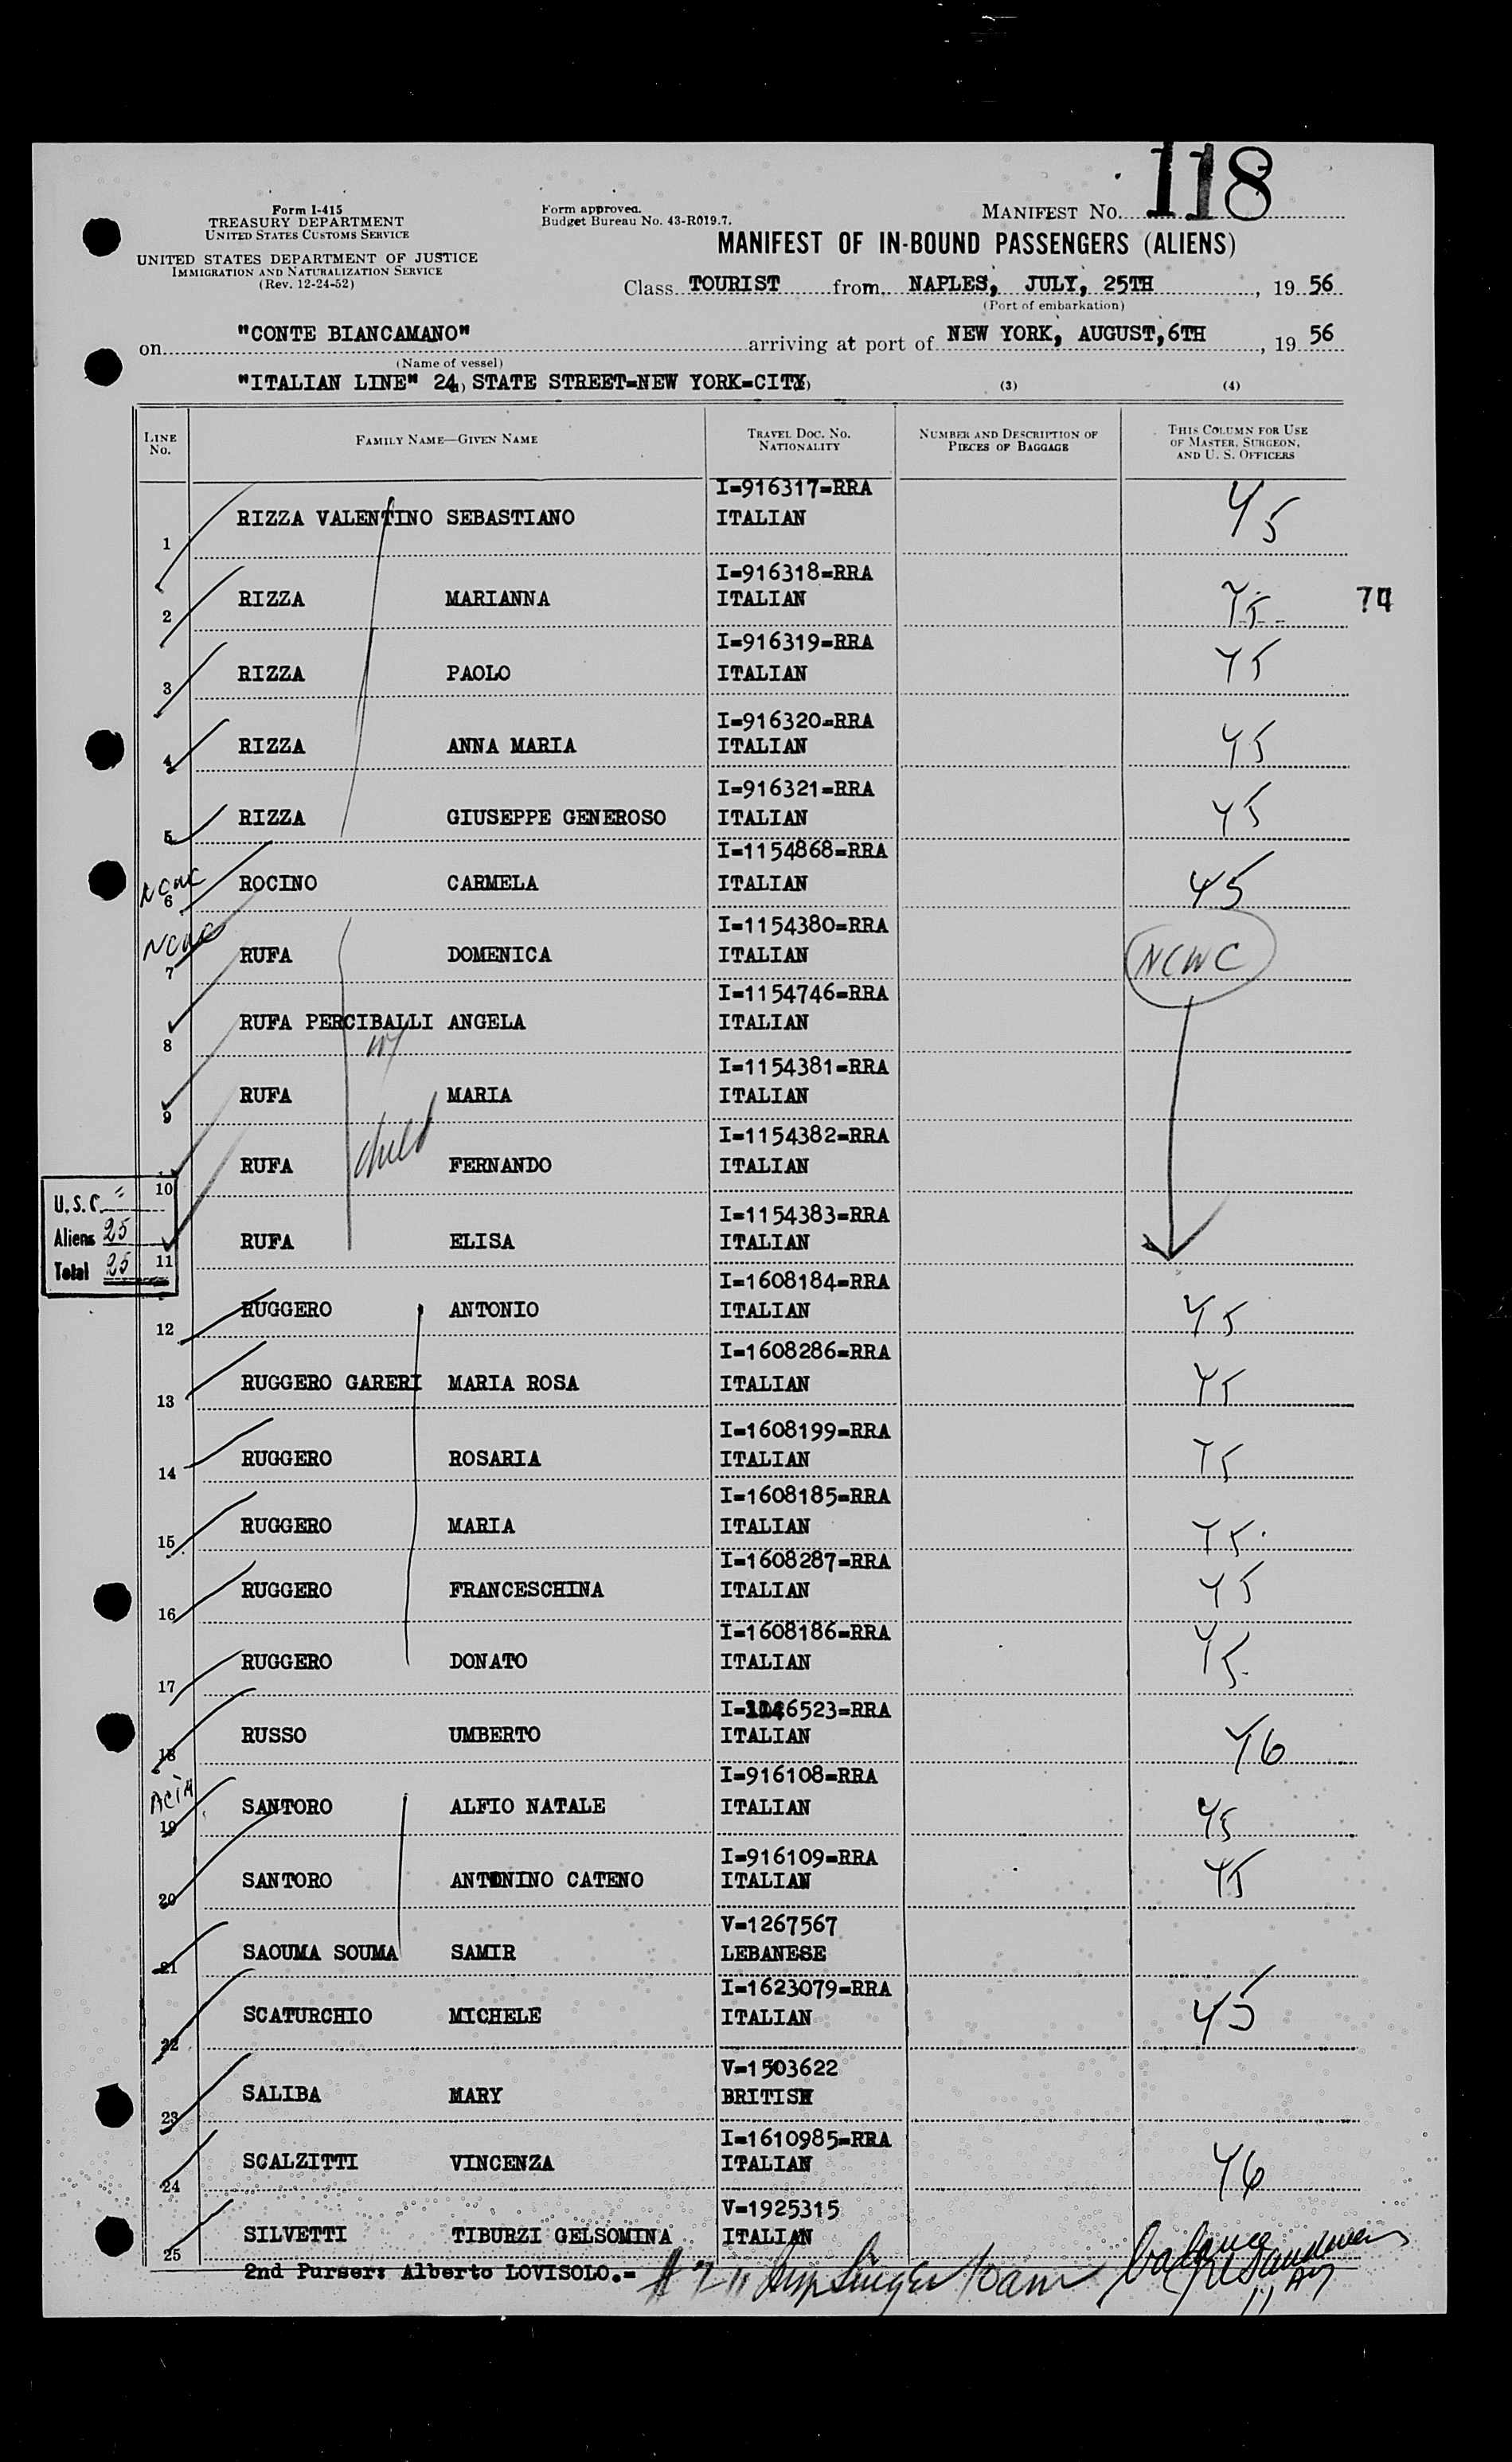 118
Form I-415
TREASURY DEPARTMENT
UNITED STATES CUSTOMS SERVICE
UNITED STATES DEPARTMENT OF JUSTICE
IMMIGRATION AND NATURALIZATION SERVICE
(Rev. 12-24-52)
Form approved.
Budget Bureau No. 43-R019.7.
MANIFEST No.
MANIFEST OF IN-BOUND PASSENGERS (ALIENS)
Class TOURIST from NAPLES, JULY, 25TH, 19 56
(Port of embarkation)
on "CONTE BIANCAMANO" arriving at port of NEW YORK, AUGUST, 6TH, 19 56
(Name of vessel)
"ITALIAN LINE" 24, STATE STREET=NEW YORK=CITY (3) (4)
LINE No. FAMILY NAME—GIVEN NAME TRAVEL DOC. No. NATIONALITY NUMBER AND DESCRIPTION OF PIECES OF BAGGAGE THIS COLUMN FOR USE OF MASTER, SURGEON, AND U. S. OFFICERS
I=916317=RRA
1 RIZZA VALENTINO SEBASTIANO ITALIAN 45
I=916318=RRA
2 RIZZA MARIANNA ITALIAN 45 74
I=916319=RRA
3 RIZZA PAOLO ITALIAN 45
I=916320=RRA
4 RIZZA ANNA MARIA ITALIAN 45
I=916321=RRA
5 RIZZA GIUSEPPE GENEROSO ITALIAN 45
I=1154868=RRA
NCWC 6 ROCINO CARMELA ITALIAN 45
I=1154380=RRA
NCWC 7 RUFA DOMENICA ITALIAN NCWC
I=1154746=RRA
8 RUFA PERCIBALLI ANGELA ITALIAN
I=1154381=RRA
9 RUFA MARIA ITALIAN
I=1154382=RRA
10 RUFA FERNANDO ITALIAN
I=1154383=RRA
11 RUFA ELISA ITALIAN
U.S.C. =
Aliens 25
Total 25
I=1608184=RRA
12 RUGGERO ANTONIO ITALIAN 45
I=1608286=RRA
13 RUGGERO GARERI MARIA ROSA ITALIAN 45
I=1608199=RRA
14 RUGGERO ROSARIA ITALIAN 45
I=1608185=RRA
15 RUGGERO MARIA ITALIAN 45
I=1608287=RRA
16 RUGGERO FRANCESCHINA ITALIAN 45
I=1608186=RRA
17 RUGGERO DONATO ITALIAN 45
18 RUSSO UMBERTO ITALIAN 46
I=916108=RRA
19 SANTORO ALFIO NATALE ITALIAN 45
I=916109=RRA
20 SANTORO ANTONINO CATENO ITALIAN 45
V=1267567
21 SAOUMA SOUMA SAMIR LEBANESE
I=1623079=RRA
22 SCATURCHIO MICHELE ITALIAN 45
V=1503622
23 SALIBA MARY BRITISH
I=1610985=RRA
24 SCALZITTI VINCENZA ITALIAN 46
V=1925315
25 SILVETTI TIBURZI GELSOMINA ITALIAN
2nd Purser: Alberto LOVISOLO.=